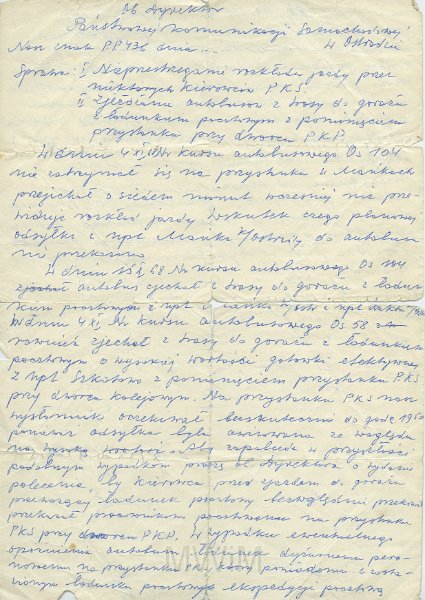 Ob Dyrektor
Państwowej Komunikacji Samochodowej
Nasz znak PP 436 dnia... w Ostródzie
Sprawa: I Nieprzestrzegania rozkładu jazdy przez
niektórych kierowców PKS.
II Zjeżdżania autobusów z trasy do garażu
z ładunkiem pocztowym z pominięciem
przystanku przy dworcu PKP.
W dniu 4 XI kursu autobusowego Os 104
nie zatrzymał się na przystanku w Mańkach
przejechał o siedem minut wcześniej niż prze-
widuje rozkład jazdy wskutek czego planowej
odsyłki z npt Mańki k/Ostródy do autobusu
nie przekazano
W dniu 15 I 68 Nr kursu autobusowego Os 104
zjechał autobus zjechał z trasy do garażu z ładun
kiem pocztowym z npt Mańki i npt
W dniu 4 XI Nr kursu autobusowego Os 68
również zjechał z trasy do garażu z ładunkiem
pocztowym o wysokiej wartości gotówki efektywnej
z npt z pominięciem przystanku PKS
przy dworcu kolejowym. Na przystanku PKS nasz
wysłannik oczekiwał bezskutecznie do godz 19 50
ponieważ odsyłka była awizowana ze względu
na wysoką wartość. Aby zapobiec w przyszłości
podobnym wypadkom proszę Ob Dyrektora o wydanie
polecenia by kierowca przed zjazdem do garażu
przewożący ładunek pocztowy bezwzględnie
przekazał pracownikom pocztowym na przystanku
PKS przy dworcu PKP. W wypadku ewentualnego
opóźnienia autobusu dyżurnemu perso-
nelowi na przystanku PKS który powiadomi o
ładunku pocztowym ekspedycję pocztową